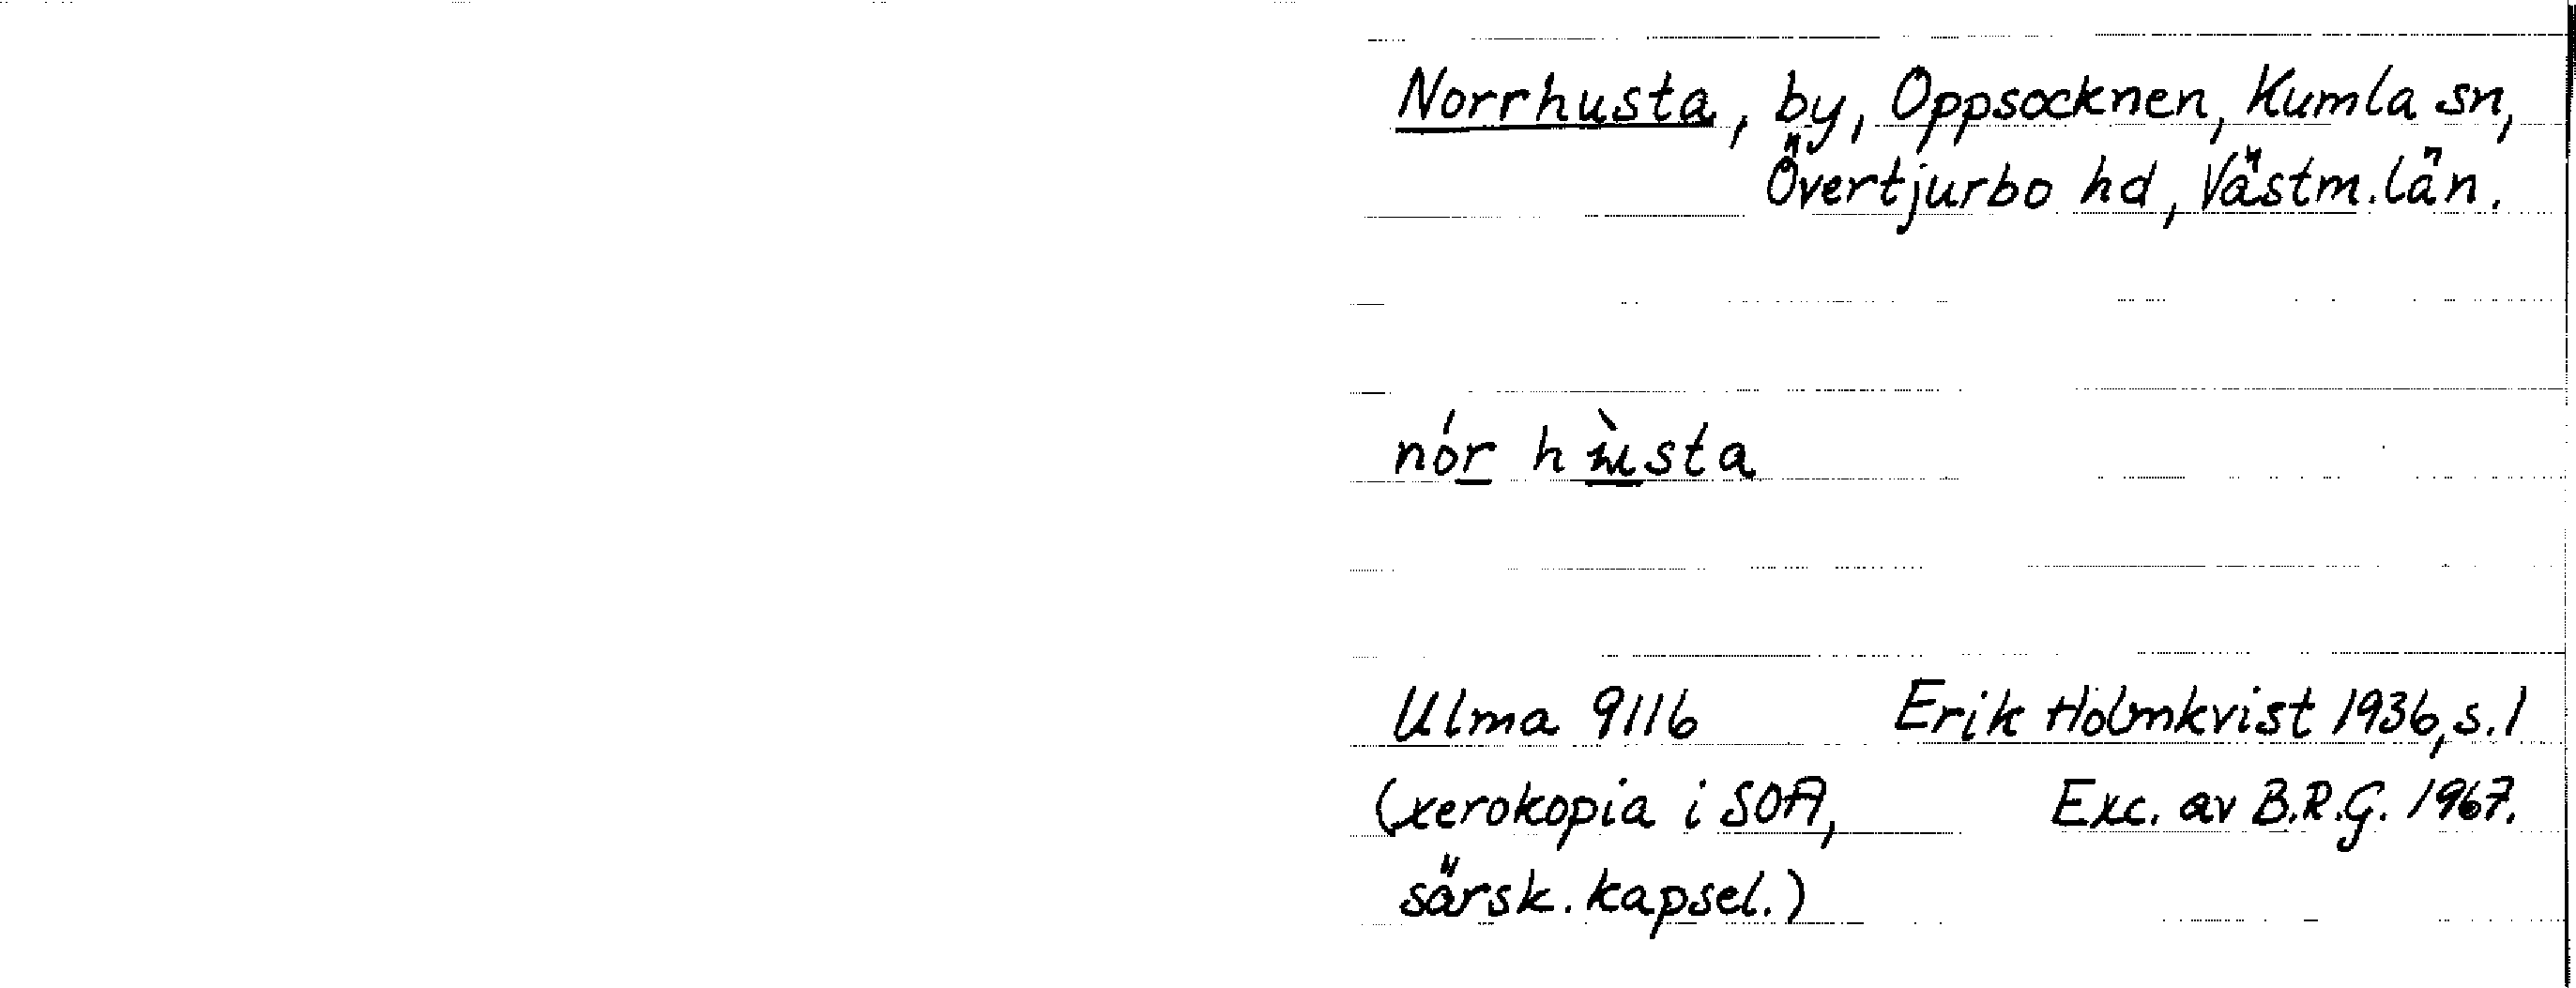 Norrhusta, by, Oppsocknen, Kumla sn,
Övertjurbo hd, Västm.län.
nór
Ulma 9116 Erik Holmkvist 1936, s.1
(xerokopia i SOA, Exc. av B.R.G. 1967.
särsk. kapsel.)